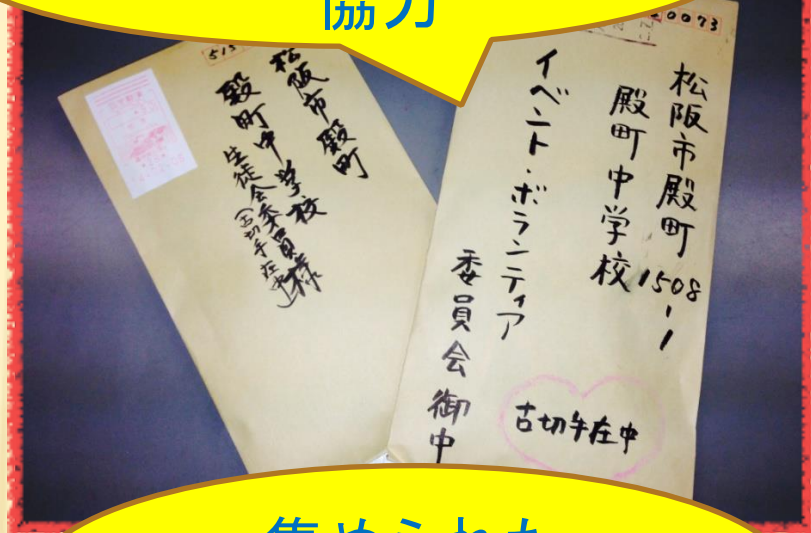 協力
515
松阪市殿町
殿町中学校
生徒会委員様
(古切手在中)
0073
松阪市殿町1508-1
殿町中学校
イベント・ボランティア
委員会御中
古切手在中
集められた